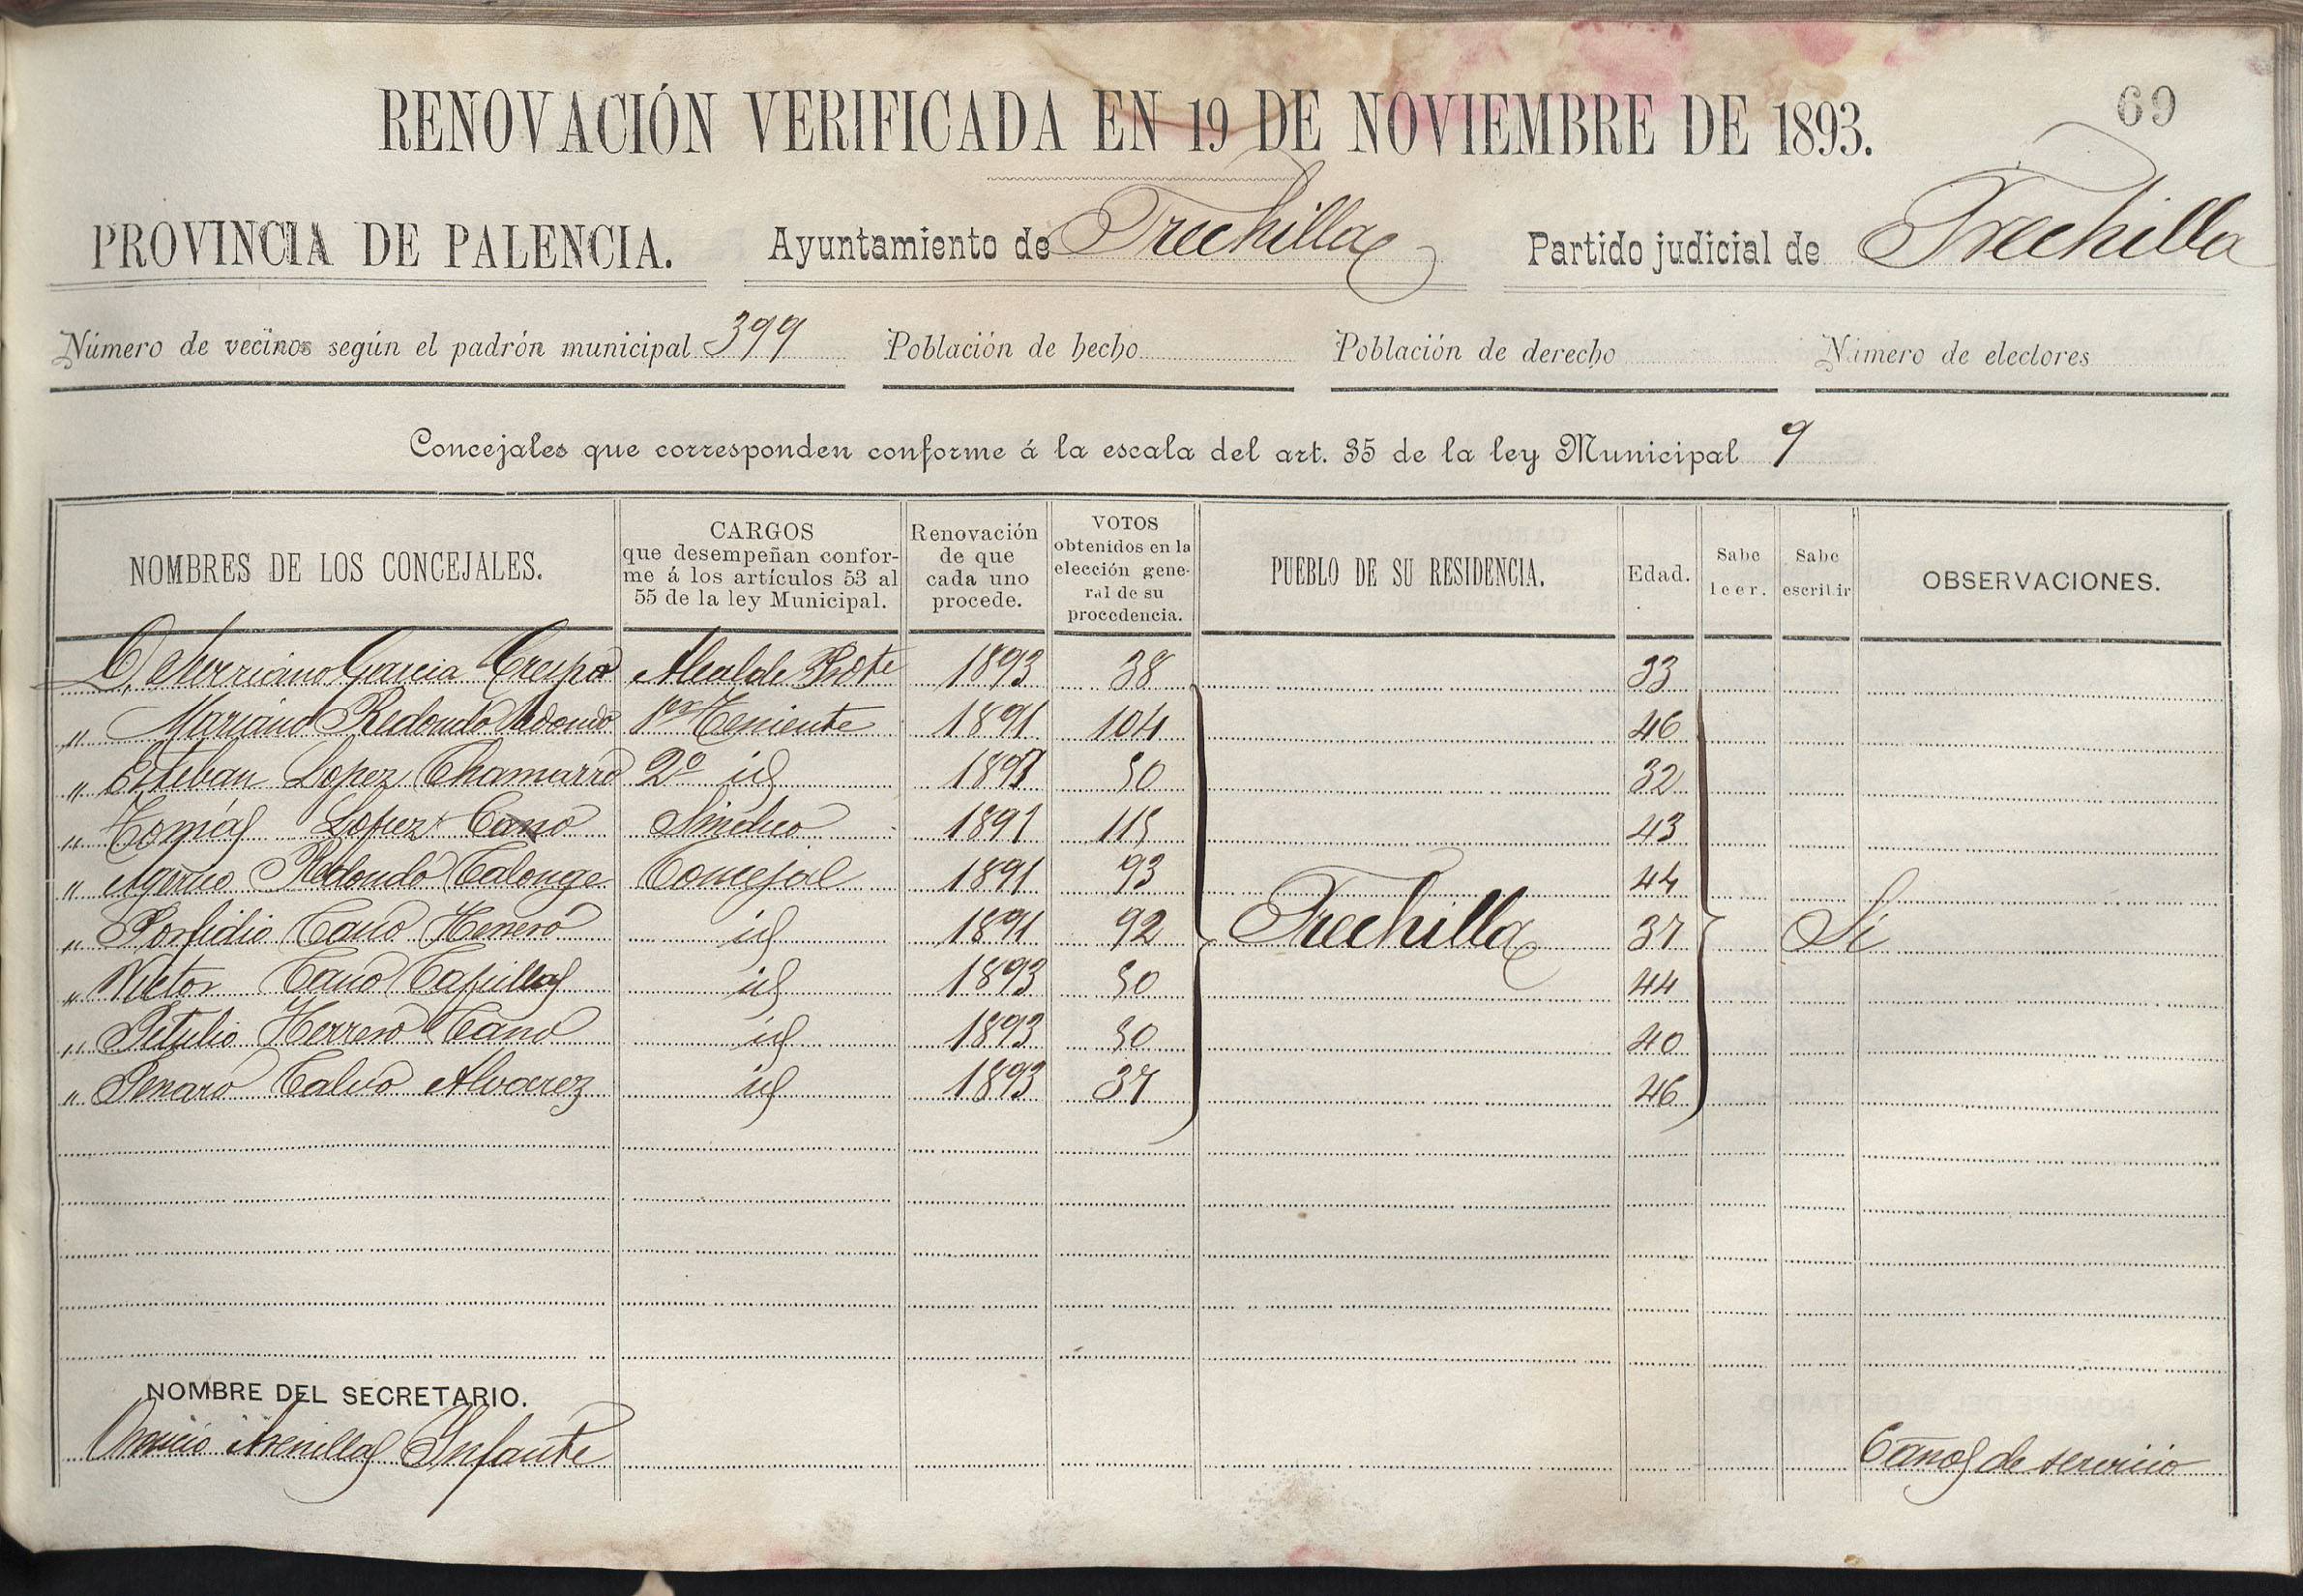 69
RENOVACIÓN VERIFICADA EN 19 DE NOVIEMBRE DE 1893.
PROVINCIA DE PALENCIA. Ayuntamiento de Frechilla Partido judicial de Frechilla
Número de vecinos según el padrón municipal 399 Población de hecho Población de derecho Número de electores
Concejales que corresponden conforme á la escala del art. 35 de la ley Municipal 9
NOMBRES DE LOS CONCEJALES. CARGOS que desempeñan conforme á los artículos 53 al 55 de la ley Municipal. Renovación de que cada uno procede. VOTOS obtenidos en la elección general de su procedencia. PUEBLO DE SU RESIDENCIA. Edad. Sabe leer. Sabe escribir OBSERVACIONES.
D. García Crespo Alcalde Pdte 1893 38 33
" Mariano Redondo Redondo 1er Teniente 1891 104 46
" Esteban Lopez Chamarro 2º id 1893 50 32
" Tomás Lopez Cano Sindico 1891 115 43
" Redondo Calonge Concejal 1891 93 44
" Porfidio Cano Herrero id 1891 92 Frechilla 37 Si
" Victor Cano Casillas id 1893 50 44
" Herrero Cano id 1893 50 40
" Genaro Calvo Alvarez id 1893 37 46
NOMBRE DEL SECRETARIO.
Arenillas Infante 6 años de servicio